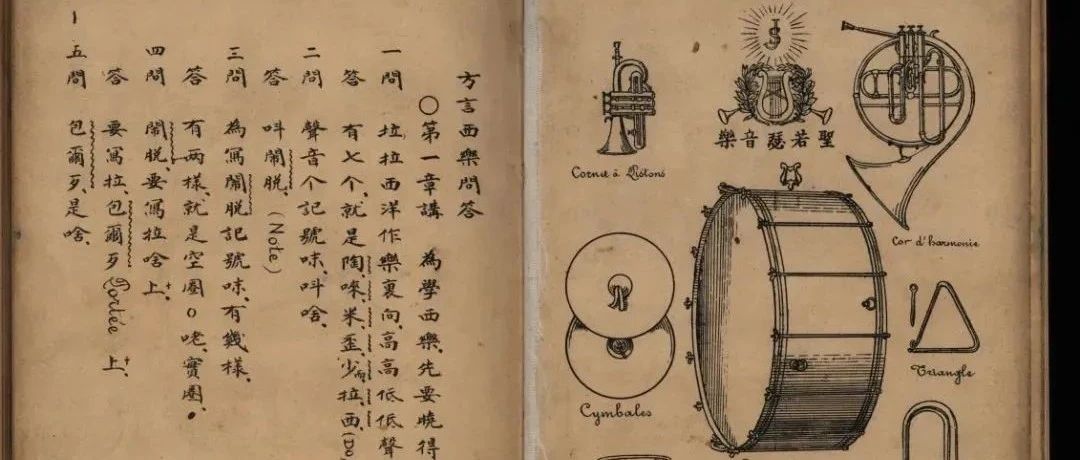 方言西樂問答
〇第一章講 為學西樂、先要曉得
一問 拉拉西洋作樂裏向、高高低低聲
答 有七个、就是陶、唻、米、歪、少、拉、西、(Do
二問 聲音个記號味、呌啥、
答 呌鬧脱、(Note)
三問 為寫鬧脱記號味、有幾樣、
答 有两樣、就是空圏○咾實圏●
四問 鬧脱、要寫拉啥上、
答 要寫拉、包爾歹 Portée 上、
五問 包爾歹、是啥、
1
聖若瑟音樂
Cornet à Pistons
Cor d'harmonie
Cymbales
Triangle